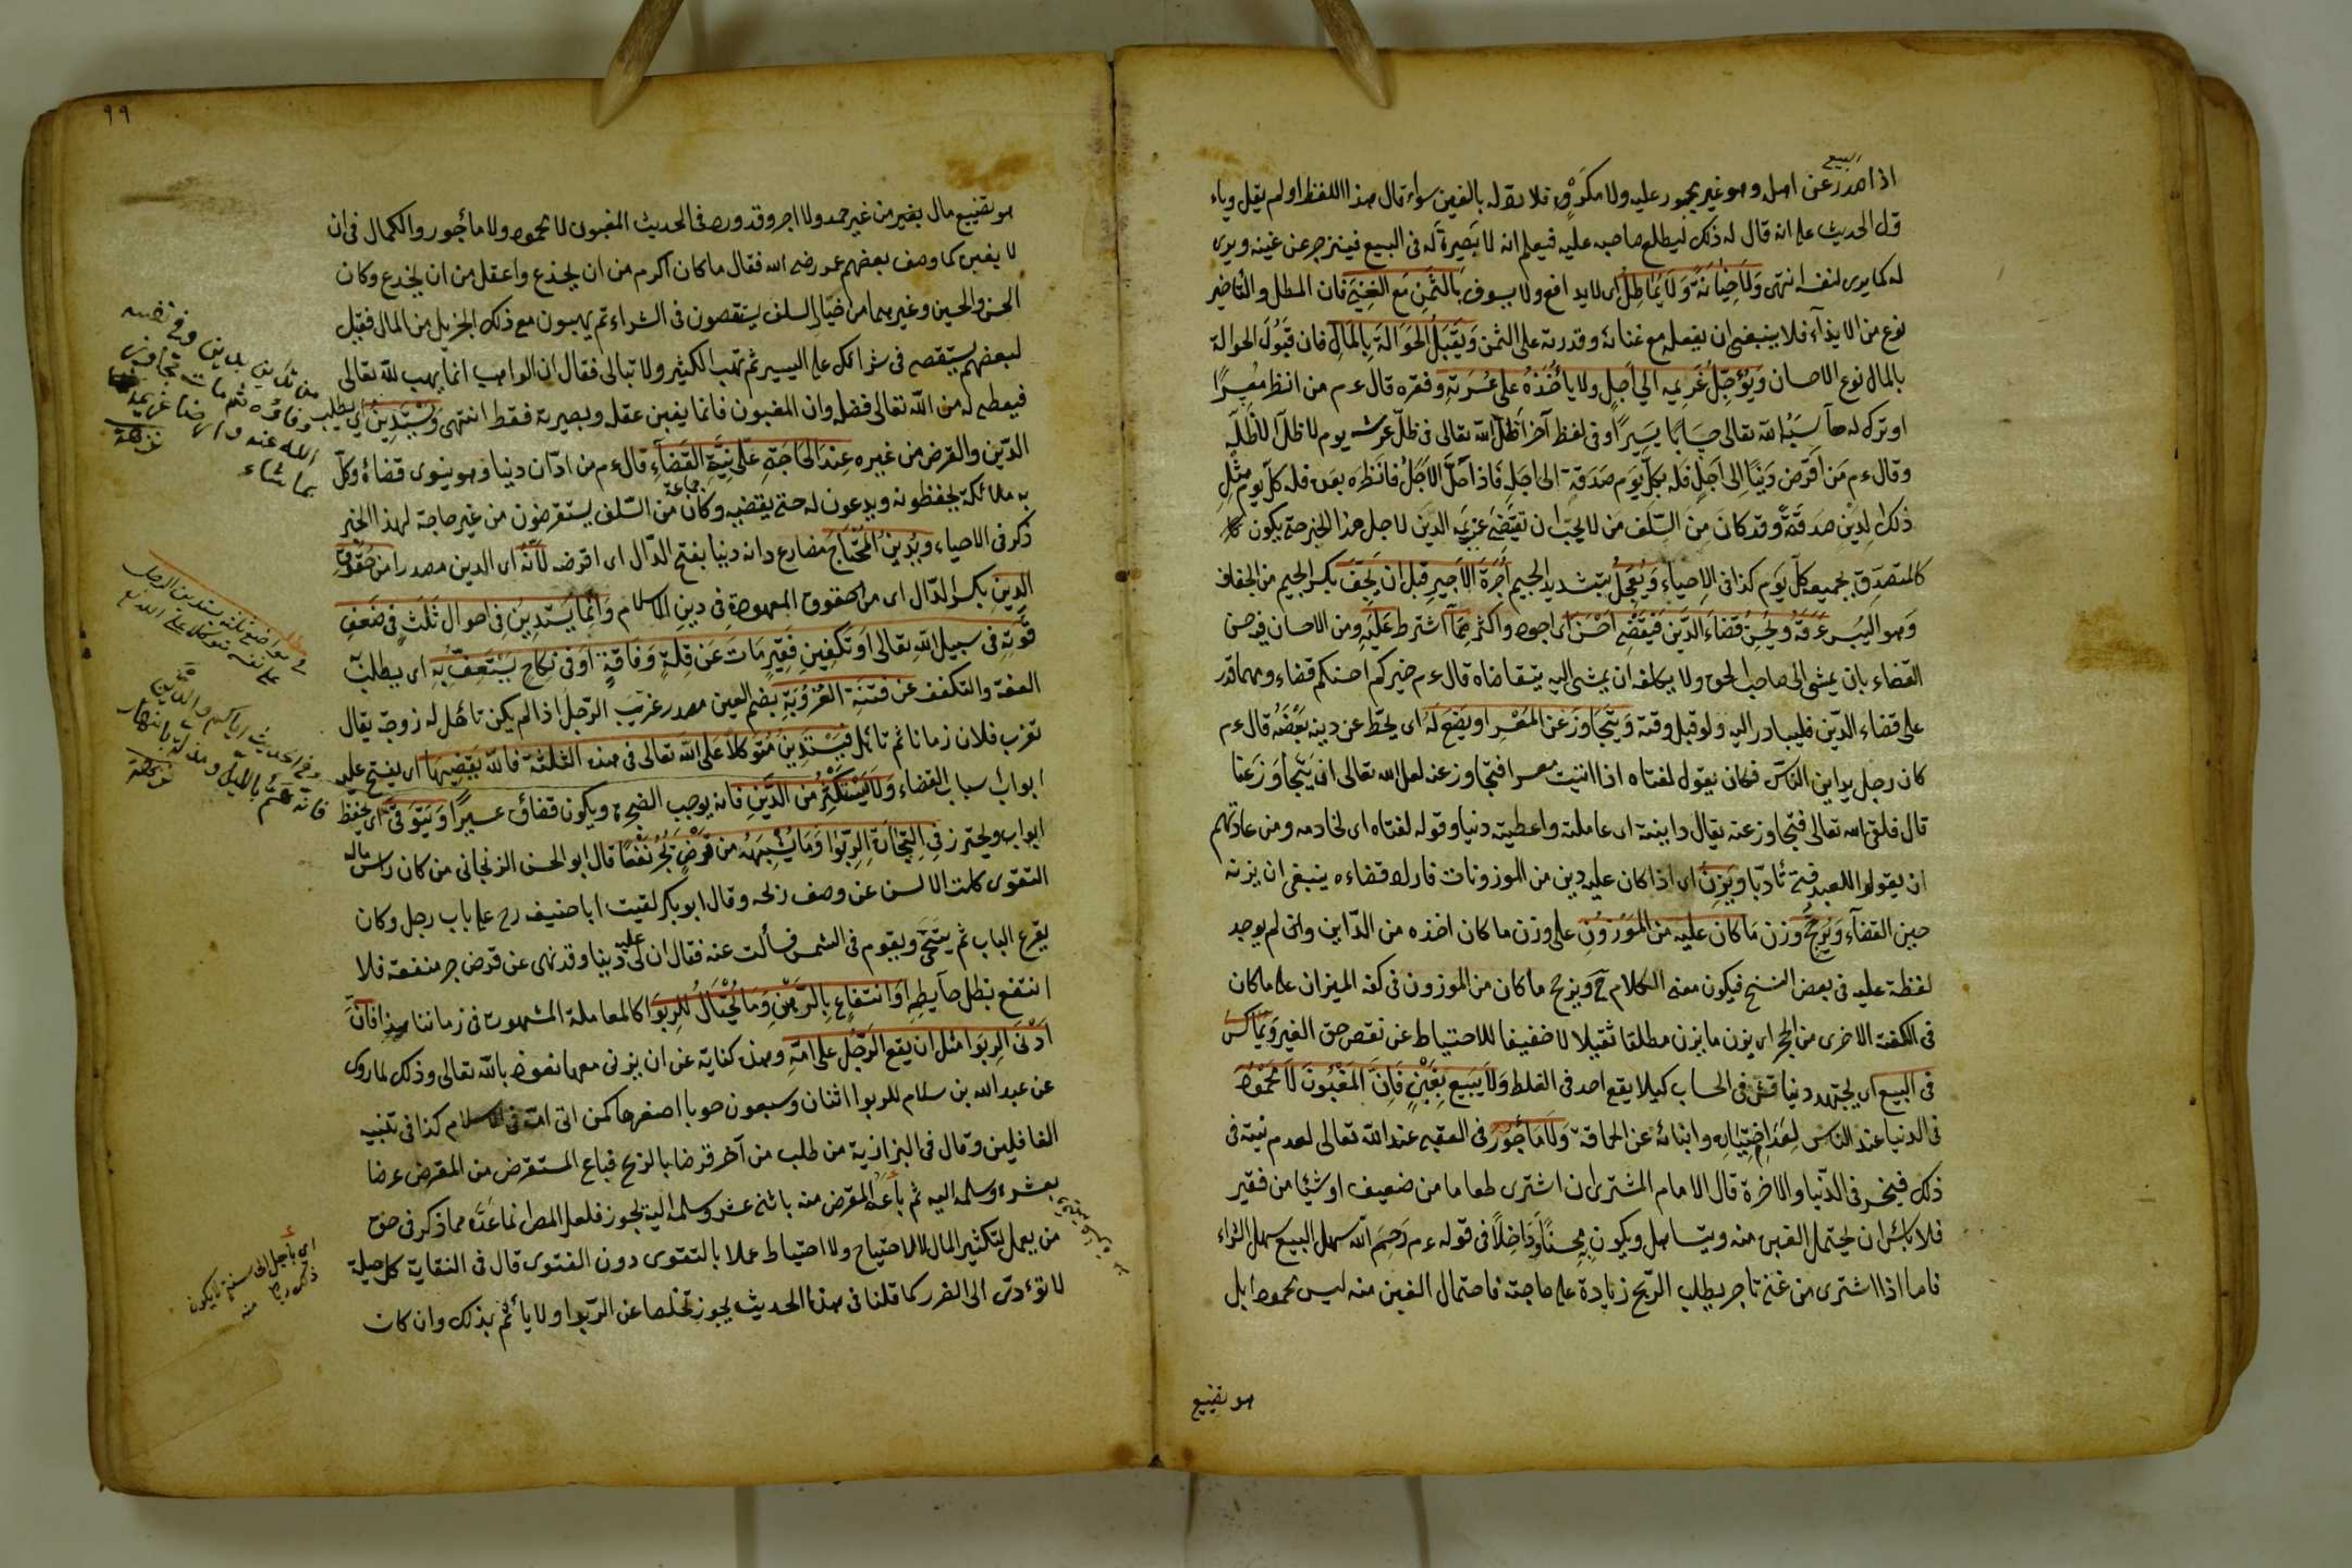 البيع
اذا صدر عن اهله وهو غير محجور عليه ولا مكره فلا رد له بالغبن سواء قال هذا اللفظ او لم يقل وباء
قل الحديث على انه قال له ذلك ليطلع صاحبه عليه فيعلم انه لا بصيرة له فى البيع فينزجر عن غبنه ويرى
له كما يرى لنفسه انتهى ولا خيانة ولا يماطل اى لا يدافع ولا يسوف بالثمن مع الغنية فان المطل والتأخير
نوع من الايذاء فلا ينبغى ان يفعله مع غنائه وقدرته على الثمن ويقبل الحوالة بالمال فان قبول الحوالة
بالمال نوع الاحسان ويؤجل غريمه الى اجل ولا يأخذه على عسرته وفقره قال ءم من انظر معسرا
او ترك له حاسبه الله تعالى حسابا يسيرا وفى لفظ آخر اظله الله تعالى فى ظل عرشه يوم لا ظل الا ظله
وقال ءم من اقرض دينا الى اجل فله بكل يوم صدقة الى اجله فاذا حل الاجل فانظره بعده فله كل يوم مثل
ذلك الدين صدقة وقد كان من السلف من لا يحب ان تقتضى غريمه الدين لاجل هذا الخبر حتى يكون
كالمتصدق بجميعه كل يوم كذا فى الاحياء ويعجل بتشديد الجيم اجرة الاجير قبل ان يجف بكسر الجيم من الجفاف
وهو اليبس عرقه ويحسن قضاء الدين فيقضى احسن اى اجود واكثر مما اشترط عليه ومن الاحسان فيه حسن
القضاء بان يمشى الى صاحب الحق ولا يكلفه ان يمشى اليه يتقاضاه قال ءم خيركم احسنكم قضاء ومهما قدر
على قضاء الدين فليبادر اليه ولو قبل وقته ويتجاوز عن المعسر او يضع له اى يحط عن دينه بعضه قال ءم
كان رجل يداين الناس فكان يقول لفتاه اذا اتيت معسرا فتجاوز عنه لعل الله تعالى ان يتجاوز عنا
قال فلقى الله تعالى فتجاوز عنه يقال داينته اى عاملته واعطيته دينا وقوله لفتاه اى لخادمه ومن عادتهم
ان يقولوا للعبد فتى تأدبا ويزن اى اذا كان عليه دين من الموزونات فاراد قضاءه ينبغى ان يزنه
حين القضاء ويرجح وزن ما كان عليه من الموزون على وزن ما كان اخذه من الداين وان لم يوجد
لفظة عليه فى بعض النسخ فيكون معنى الكلام ح ويرجح ما كان من الموزون فى كفة الميزان على ما كان
فى الكفة الاخرى من الحجر اى يزن ما يزن مطلقا ثقيلا لا خفيفا للاحتياط عن نقص حق الغير ويماكس
فى البيع اى يجتهد ويناقش فى الحساب كيلا يقع احد فى الغلط ولا يبيع بغبن فان المغبون لا محمود
فى الدنيا عند الناس لعد اختياره وابنائه عن الحماقة ولا مأجور فى العقبى عند الله تعالى لعدم نيته فى
ذلك فيخسر فى الدنيا والاخرة قال الامام المشترى ان اشترى طعاما من ضعيف او شيئا من فقير
فلا بأس ان يحتمل الغبن منه ويتساهل ويكون محسنا وداخلا فى قوله ءم رحم الله سهل البيع سهل الشراء
فاما اذا اشترى من غنى تاجر يطلب الربح زيادة على حاجته فاحتمال الغبن منه ليس محمودا بل
هو تضييع
٩٩
هو تضييع مال بغير من غير حمد ولا اجر وقد ورد فى الحديث المغبون لا محمود ولا مأجور والكمال فى ان
لا يغبن كما وصف بعضهم عمر رضى الله فقال ما كان اكرم من ان يخدع واعقل من ان يخدع وكان
الحسن والحسين وغيرهما من خيار السلف يستقصون فى الشراء ثم يهبون مع ذلك الجزيل من المال فقيل
لبعضهم يستقصى فى شرائك على اليسير ثم تهب الكثير ولا تبالى فقال ان الواهب انما يهب لله تعالى
فيعطيه من الله تعالى فضله وان المغبون فانما يغبن عقله وبصيرته فقط انتهى ويستدين اى يطلب
الدين والقرض من غيره عند الحاجة على نية القضاء قال ءم من ادان دينا وهو ينوى قضاءه وكل
به ملائكة يحفظونه ويدعون له حتى يقضيه وكان جماعة من السلف يستقرضون من غير حاجة لهذا الخبر
ذكر فى الاحياء ويدين المحتاج مضارع دانه دينا بفتح الدال اى اقرضه لانه اى الدين مصدرا من حقوق
الدين بكسر الدال اى من الحقوق المعهودة فى دين الاسلام وانما يستدين فى احوال ثلث فى ضعف
قوته فى سبيل الله تعالى او تكفين فقير مات عن قلة وفاقة او فى نكاح يستعف به اى يطلب
العفة والتكفف عن فتنة العزوبة بضم العين مصدر عزب الرجل اذا لم يكن تأهل له زوجة يقال
تعزب فلان زمانا ثم تأهل فيستدين متوكلا على الله تعالى فى هذه الثلثة فالله يقضيها اى يفتح عليه
ابواب اسباب القضاء ولا يستكثر من الدين فانه يوجب الضجرة ويكون قضاؤه عسيرا ويتوقى اى يحفظ
ابواب ويحترز فى التجارة الربوا وما يشبهه من قرض يجر نفعا قال ابو الحسن الزنجانى من كان رأس ماله
التقوى كلت الالسن عن وصف ربحه وقال ابو بكر لقيت ابا حنيفه رح على باب رجل وكان
يقرع الباب ثم يتنحى ويقوم فى الشمس فسألت عنه فقال ان لى عليه دينا وقد نهى عن قرض جر منفعة فلا
انتفع بظل حايطه او انتفاع بالرهن وما يحتال للربوا كالمعاملة المشهورة فى زماننا هذا فان
ادنى الربوا مثل ان يقع الرجل على امه وهذه كناية عن ان يزنى معها نعوذ بالله تعالى وذلك لما روى
عن عبد الله بن سلام للربوا اثنان وسبعون حوبا اصغرها كمن اتى امه فى الاسلام كذا فى تنبيه
الغافلين وقال فى البزازية من طلب من آخر قرضا بالربح فباع المستقرض من المقرض عرضا
بعشرة وسلمه اليه ثم باعه المقرض منه باثنى عشر وسلمه اليه يجوز فلعل المص انما عده مما ذكر فى حق
من يعمل لتكثير المال لا للاحتياج ولا احتياط عملا بالتقوى دون الفتوى قال فى النقاية كل حيلة
لا تؤدى الى الضرر كما قلنا فى هذا الحديث يجوز تخلصا عن الربوا ولا يأثم بذلك وان كان
من تداين بدين وفى نفسه
وفاؤه ثم مات تجاوز
الله عنه وارضا غريمه
بما شاء
نزهة
وفى الحديث اياكم والدين
فانه هم بالليل ومذلة بالنهار
اى بأجل الى سنة